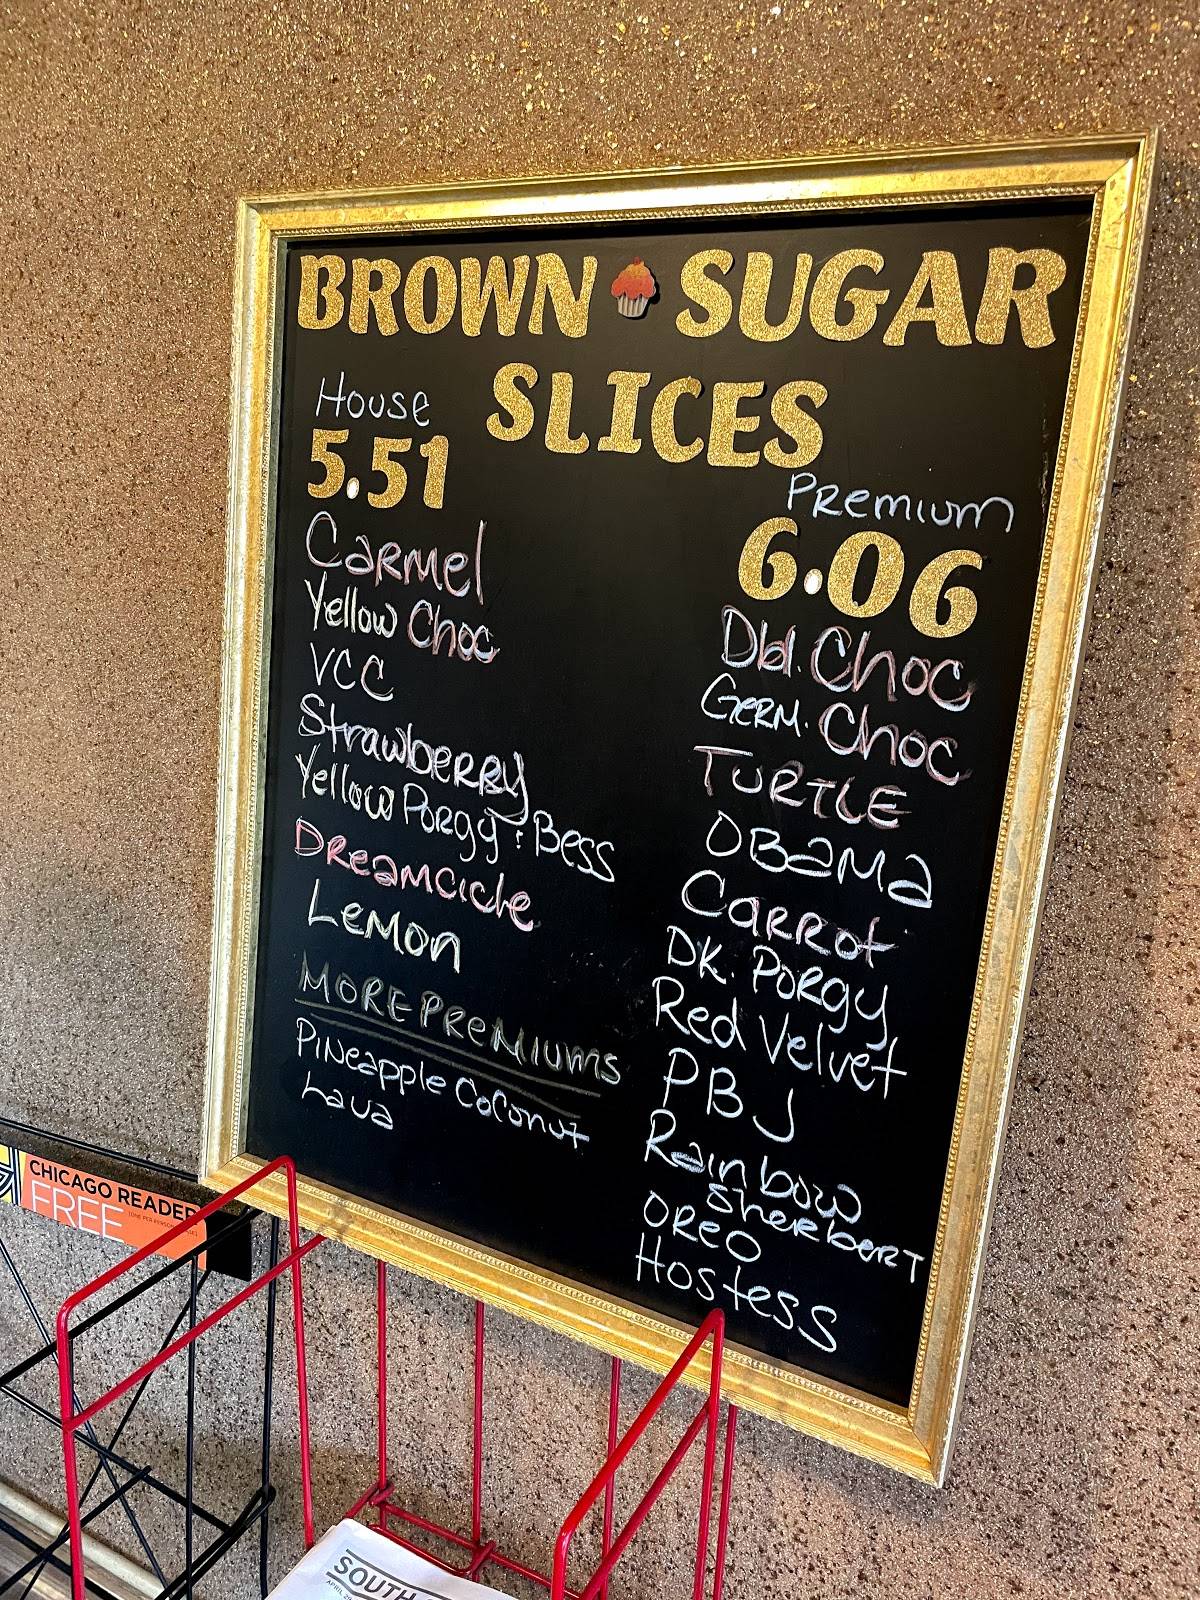 BROWN SUGAR
SLICES
House
5.51
Carmel
Yellow Choc
VCC
Strawberry
Yellow Porgy & Bess
Dreamcicle
Lemon
More Premiums
Pineapple Coconut
Lava
Premium
6.06
Dbl. Choc
Germ. Choc
Turtle
Obama
Carrot
DK. Porgy
Red Velvet
PBJ
Rainbow
Sherbert
Oreo
Hostess
CHICAGO READER
FREE
SOUTH